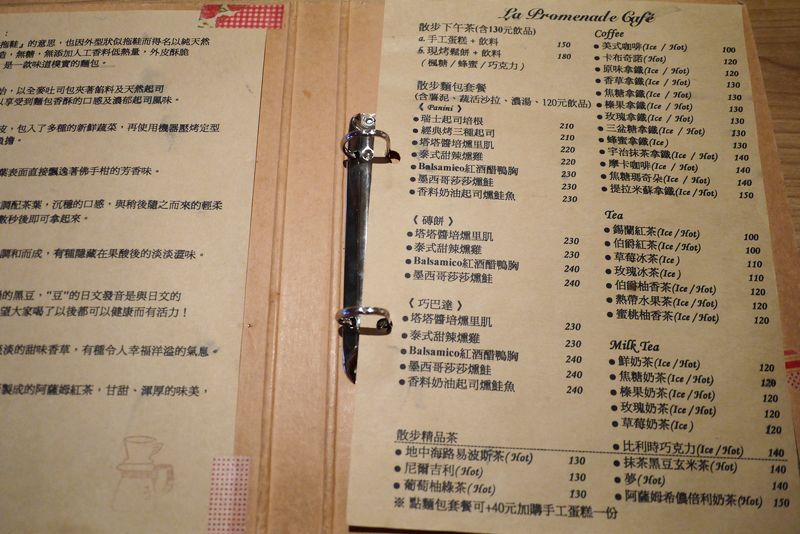 ：
拖鞋』的意思，也因外型狀似拖鞋而得名以純天然
造，無糖，無添加人工香料低熱量，外皮酥脆
是一款味道樸實的麵包。
始，以全麥吐司包夾著餡料及天然起司
以享受到麵包香酥的口感及濃郁起司風味。
皮，包入了多種的新鮮蔬菜，再使用機器壓烤定型
負擔。
葉表面直接飄逸著佛手柑的芳香味。
調配茶葉，沉穩的口感，與稍後隨之而來的輕柔
數秒後即可拿起來。
調和而成，有種隱藏在果酸後的淡淡澀味。
的黑豆，"豆"的日文發音是與日文的
望大家喝了以後都可以健康而有活力！
淡淡的甜味香草，有種令人幸福洋溢的氣息。
製成的阿薩姆紅茶，甘甜、渾厚的味美，
La Promenade Café
散步下午茶(含130元飲品)
a. 手工蛋糕 + 飲料 150
b. 現烤鬆餅 + 飲料 180
（楓糖 / 蜂蜜 / 巧克力）
散步麵包套餐
(含薯泥、蔬活沙拉、濃湯、120元飲品)
《 Panini 》
●瑞士起司培根 210
●經典烤三種起司 210
●塔塔醬培燻里肌 220
●泰式甜辣燻雞 220
●Balsamico紅酒醋鴨胸 230
●墨西哥莎莎燻鮭 230
●香料奶油起司燻鮭魚 230
《 磚餅 》
●塔塔醬培燻里肌 230
●泰式甜辣燻雞 230
●Balsamico紅酒醋鴨胸 240
●墨西哥莎莎燻鮭 240
《 巧巴達 》
●塔塔醬培燻里肌 230
●泰式甜辣燻雞 230
●Balsamico紅酒醋鴨胸 240
●墨西哥莎莎燻鮭 240
●香料奶油起司燻鮭魚 240
Coffee
●美式咖啡(Ice / Hot) 100
●卡布奇諾(Hot) 120
●原味拿鐵(Ice / Hot) 120
●香草拿鐵(Ice / Hot) 130
●焦糖拿鐵(Ice / Hot) 130
●榛果拿鐵(Ice / Hot) 130
●玫瑰拿鐵(Ice / Hot) 130
●三盆糖拿鐵(Ice / Hot) 130
●蜂蜜拿鐵(Ice) 130
●宇治抹茶拿鐵(Ice / Hot) 140
●摩卡咖啡(Ice / Hot) 140
●焦糖瑪奇朵(Ice / Hot) 140
●提拉米蘇拿鐵(Ice / Hot) 150
Tea
●錫蘭紅茶(Ice/Hot) 100
●伯爵紅茶(Ice/Hot) 100
●草莓冰茶(Ice) 110
●玫瑰冰茶(Ice) 110
●伯爵柚香茶(Ice/Hot) 120
●熱帶水果茶(Ice/Hot) 120
●蜜桃柚香茶(Ice/Hot) 120
Milk Tea
●鮮奶茶(Ice / Hot) 120
●焦糖奶茶(Ice / Hot) 120
●榛果奶茶(Ice / Hot) 120
●玫瑰奶茶(Ice / Hot) 120
●草莓奶茶(Ice) 120
●比利時巧克力(Ice / Hot) 140
散步精品茶
●地中海路易波斯茶(Hot) 130
●尼爾吉利(Hot) 130
●葡萄柚綠茶(Hot) 130
●抹茶黑豆玄米茶(Hot) 140
●夢(Hot) 140
●阿薩姆希儂倍利奶茶(Hot) 150
※ 點麵包套餐可+40元加購手工蛋糕一份